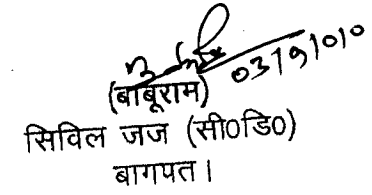 03/9/010
(बाबूराम)
सिविल जज (सी0डि0)
बागपत।